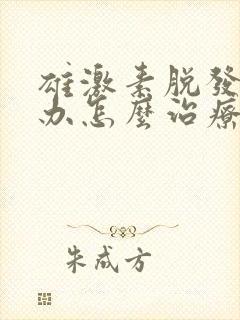 雄激素脱發
办怎麼治療
朱成方